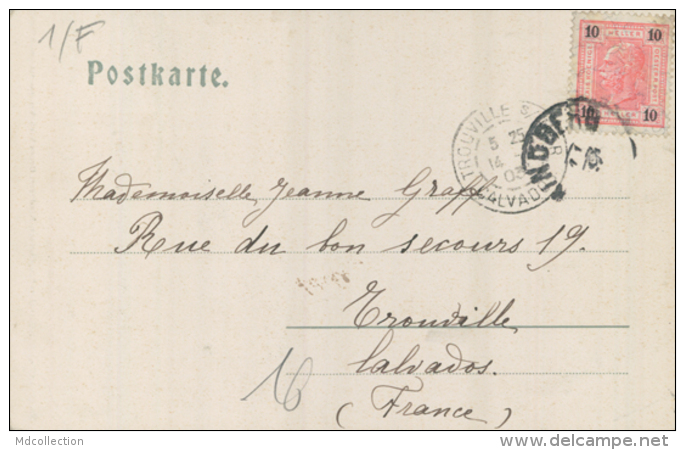 1/F
Postkarte.
10 HELLER 10
10 10
TROUVILLE S
5 25
14
03
CALVADOS
Mademoiselle Jeanne Graff
Rue du bon secours 19.
Trouville
Calvados.
(France)
16
Mdcollection
delcampe.net